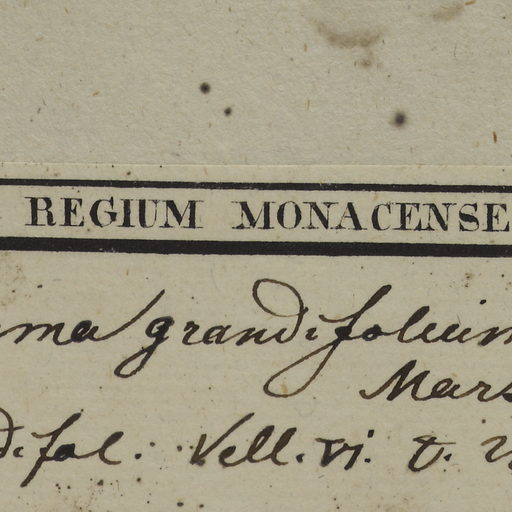 REGIUM MONACENSE
ma grandifolium
Mars
di fol. Vell. VI. t.